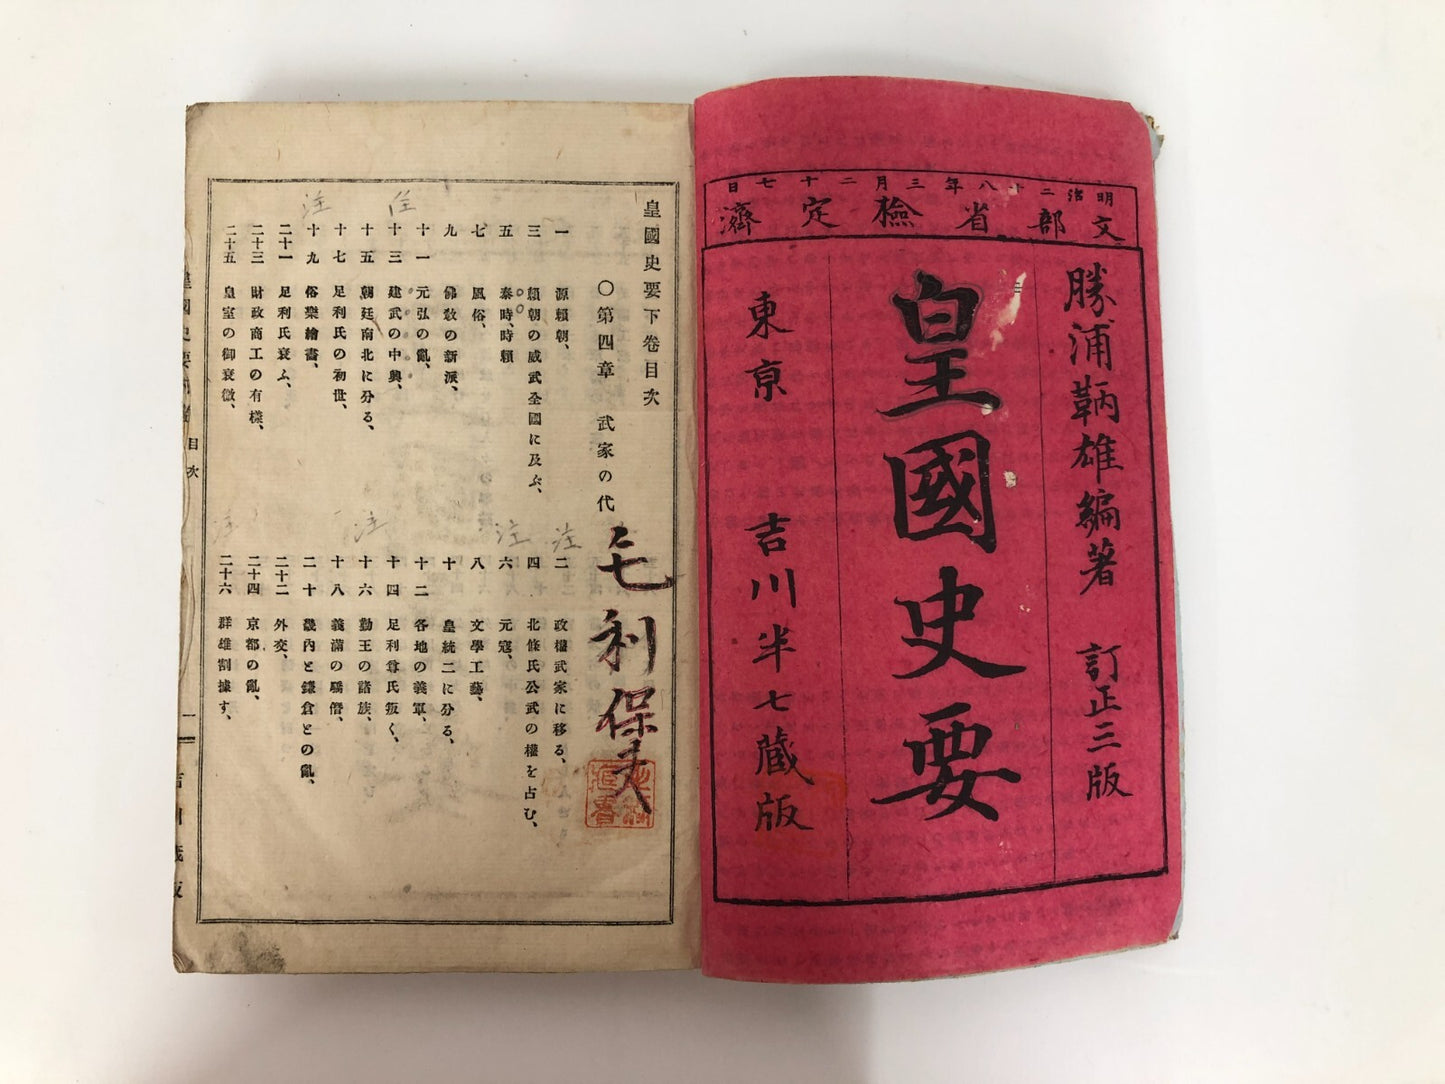 明治二十八年三月二十七日
文部省檢定濟
勝浦鞆雄編著 訂正三版
皇國史要
東京 吉川半七藏版
皇國史要下卷目次
〇第四章 武家の代
毛利保
一 源賴朝、
二 政權武家に移る、
三 賴朝の威武全國に及ぶ、
四 北條氏公武の權を占む、
五 泰時、時賴
六 元寇、
七 風俗、
八 文學工藝、
九 佛敎の新派、
十 皇統二に分る、
十一 元弘の亂、
十二 各地の義軍、
十三 建武の中興、
十四 足利尊氏叛く、
十五 朝廷南北に分る、
十六 勤王の諸族、
十七 足利氏の初世、
十八 義滿の驕僭、
十九 俗樂繪畵、
二十 畿內と鎌倉との亂、
二十一 足利氏衰ふ、
二十二 外交、
二十三 財政商工の有樣、
二十四 京都の亂、
二十五 皇室の御衰微、
二十六 群雄割據す、
注
注
注
注
注
注
目次
一